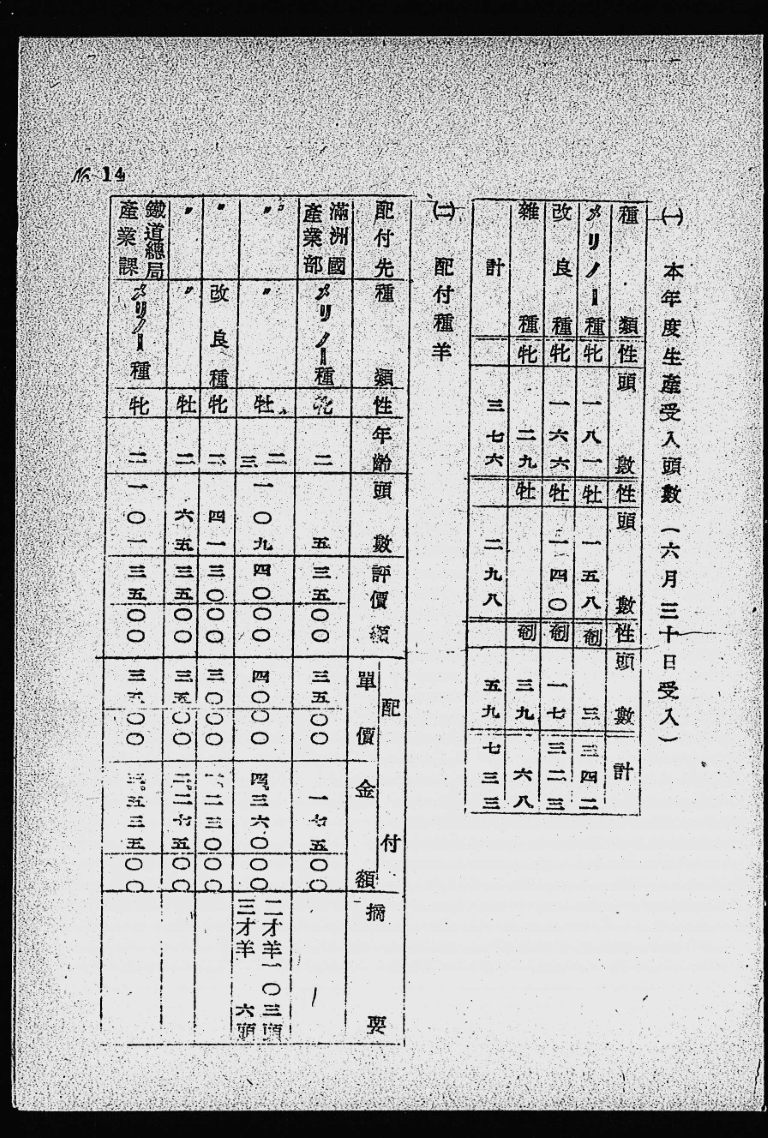 No 14
㈠ 本年度生產受入頭數（六月三十日受入）
種類 性 頭數 性 頭數 性 頭數 計
メリノー種 牝 一八一 牡 一五八 剳 三 三四二
改良種 牝 一六六 牡 一四〇 剳 一七 三二三
雜種 牝 二九 牡 剳 三九 六八
計 三七六 二九八 五九 七三三
㈡ 配付種羊
配付先 種類 性 年齡 頭數 評價額 配付 單價 金額 摘要
滿洲國產業部 メリノー種 牝 二 五 三五〇〇 三五〇〇 一七五〇〇
〃 〃 牡 二三 一〇九 四〇〇〇 四〇〇〇 四、三六〇〇〇 二才羊一〇三頭 三才羊 六頭
〃 改良種 牝 二 四一 三〇〇〇 三〇〇〇 一、二三〇〇〇
〃 〃 牡 二 六五 三五〇〇 三五〇〇 二、二七五〇〇
鐵道總局產業課 メリノー種 牝 二 一〇一 三五〇〇 三五〇〇 三、五三五〇〇